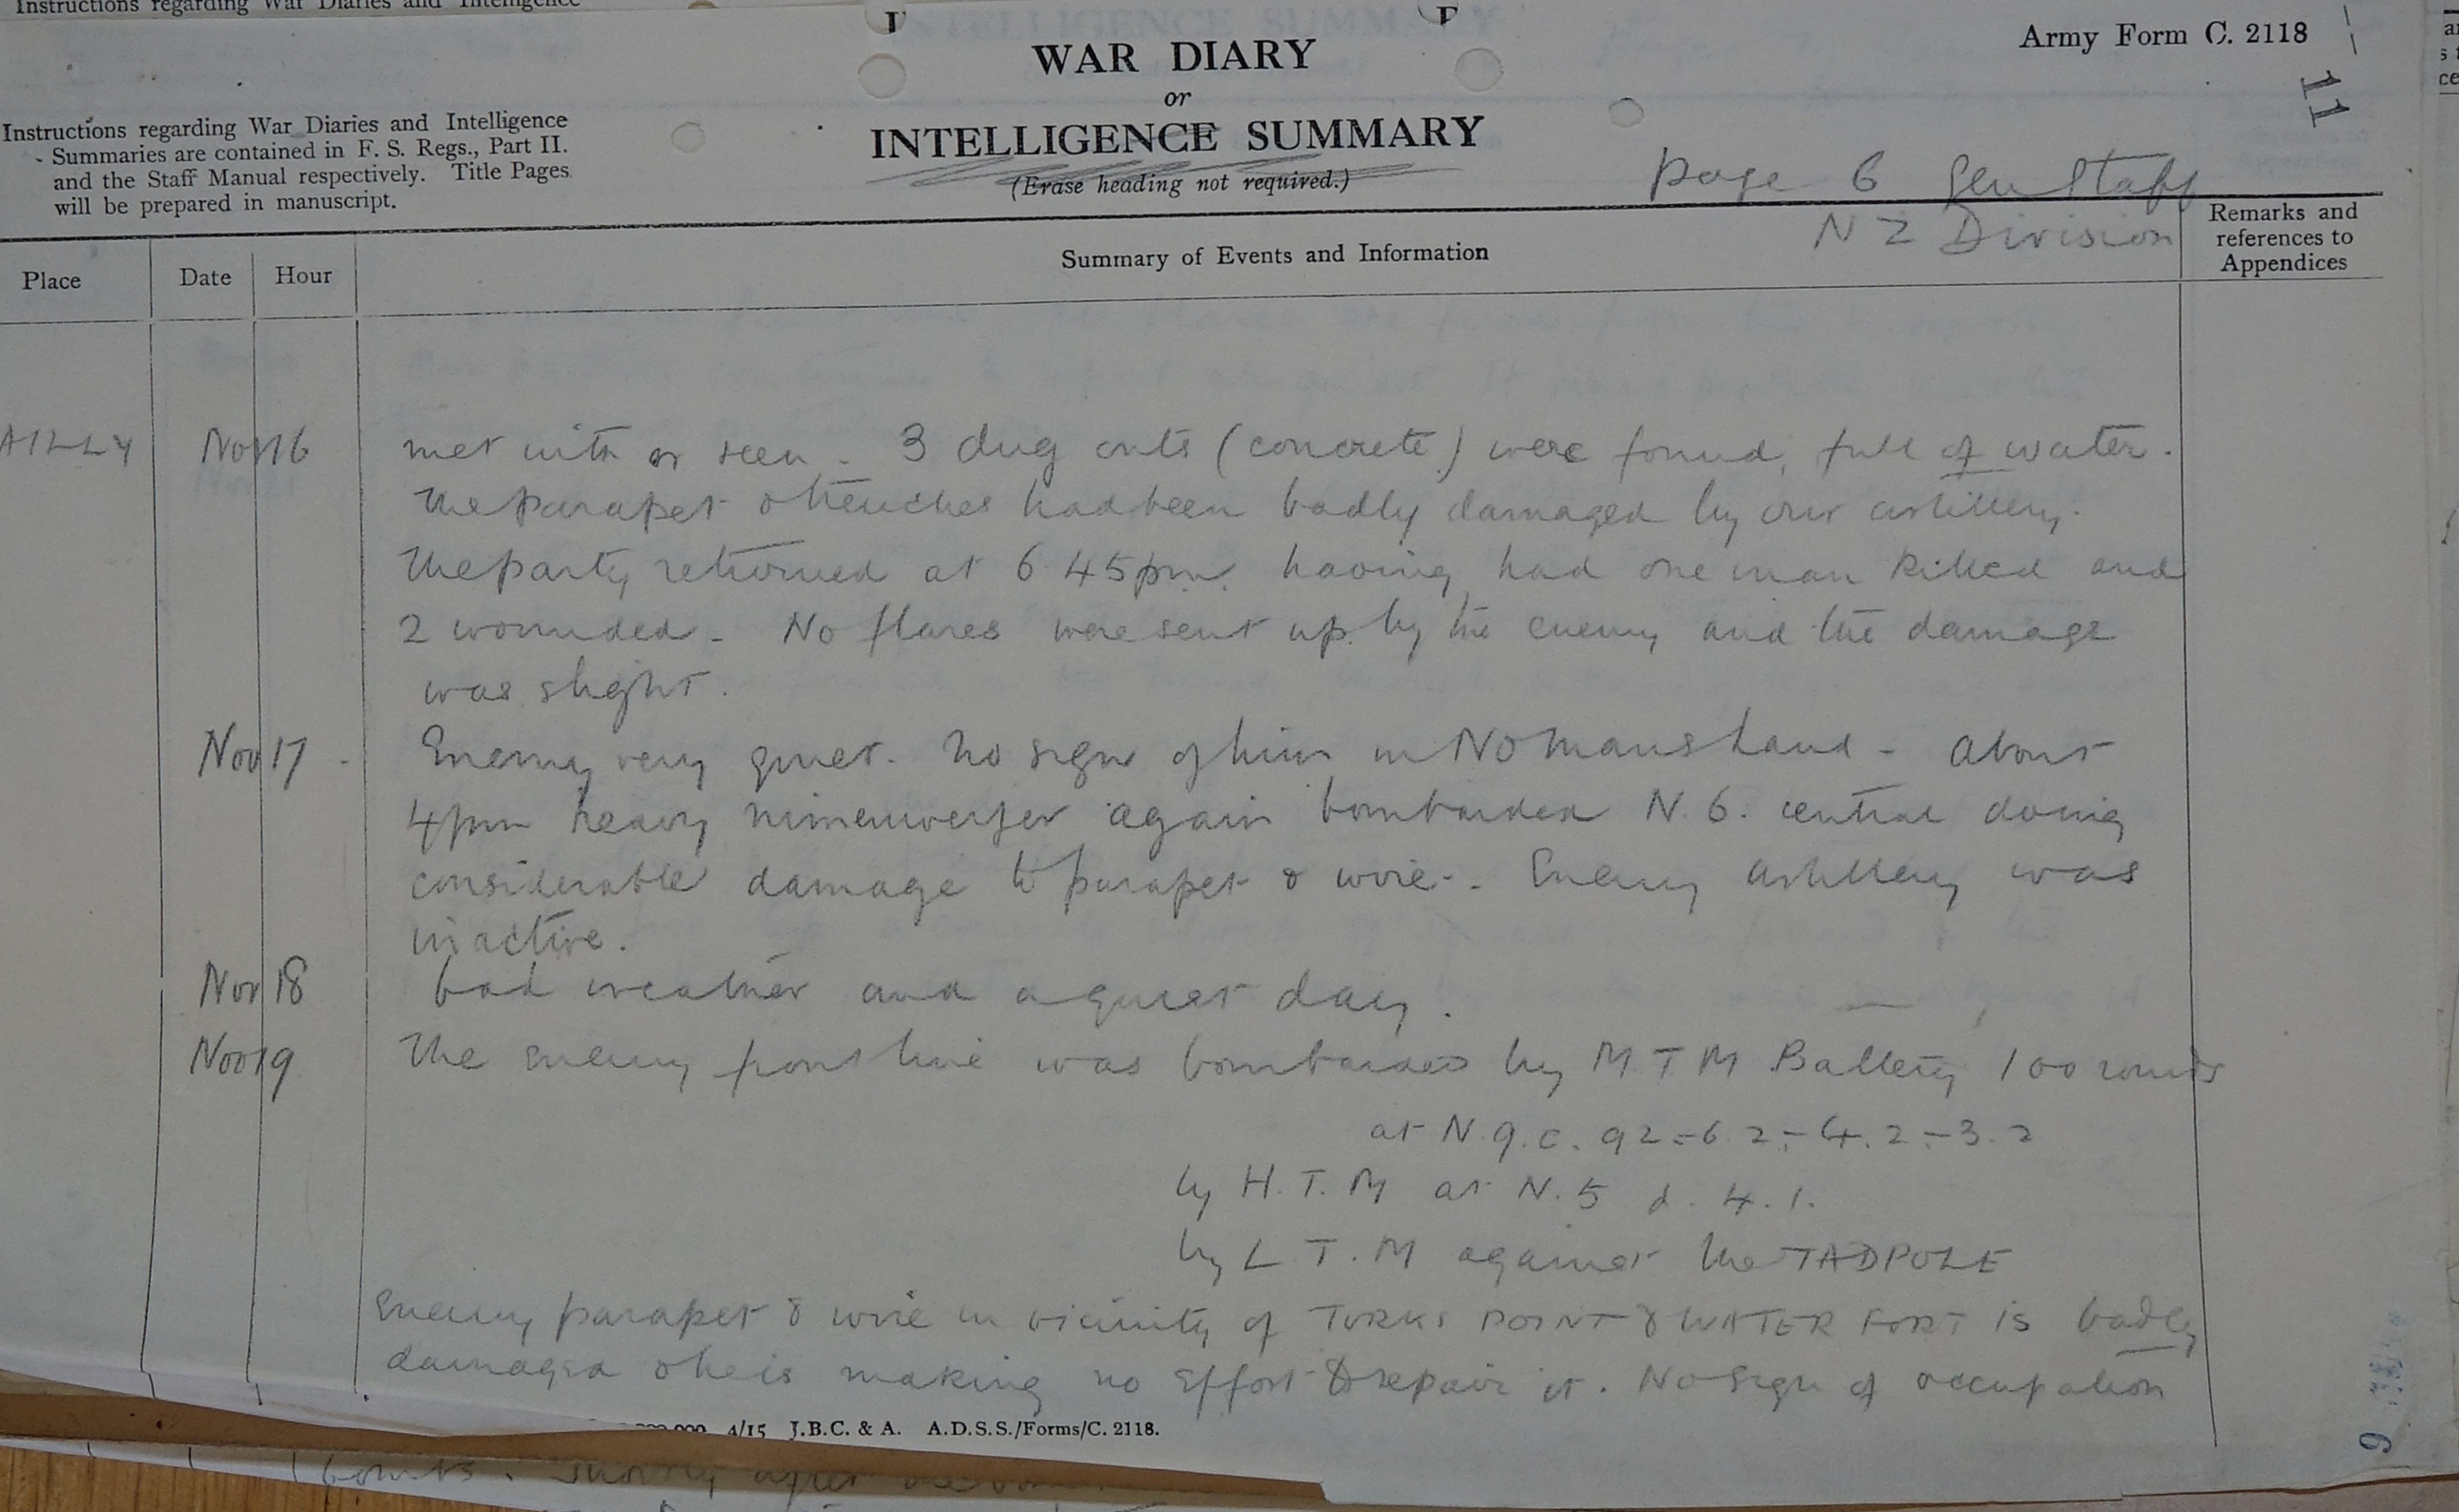 Instructions regarding War Diaries and Intelligence
Army Form C. 2118
11
WAR DIARY
or
INTELLIGENCE SUMMARY
(Erase heading not required.)
Instructions regarding War Diaries and Intelligence
Summaries are contained in F. S. Regs., Part II.
and the Staff Manual respectively. Title Pages
will be prepared in manuscript.
Page 6 Gen Staff
N Z Division
Place
Date
Hour
Summary of Events and Information
Remarks and
references to
Appendices
AILLY Nov 16 met with or seen. 3 dug outs (concrete) were found, full of water.
The parapet & trenches had been badly damaged by our artillery.
The party returned at 6 45pm having had one man killed and
2 wounded - No flares were sent up by the enemy and the damage
was slight.
Nov 17 - Enemy very quiet. No sign of him in No Mans Land - About
4pm heavy minenwerfer again bombarded N. 6. central doing
considerable damage to parapet & wire - Enemy artillery was
inactive.
Nov 18 bad weather and a quiet day.
Nov 19 The enemy front line was bombarded by M T M Battery 100 rounds
at N. 9. c. 9 2 - 6. 2 - 4. 2 - 3. 2
by H. T. M at N. 5 d. 4. 1.
by L T. M against the TADPOLE
Enemy parapet & wire in vicinity of TURKS POINT & WATER FORT is badly
damaged & he is making no effort to repair it. No sign of occupation
4/15 J.B.C. & A. A.D.S.S./Forms/C. 2118.
9